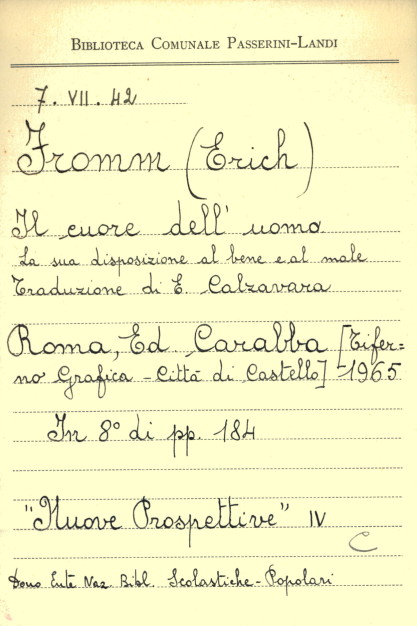 BIBLIOTECA COMUNALE PASSERINI-LANDI
7. VII. 42
Fromm (Erich)
Il cuore dell' uomo
La sua disposizione al bene e al male
Traduzione di E. Calzavara
Roma, Ed. Carabba [Tifer=
no Grafica - Città di Castello] - 1965
In 8° di pp. 184
"Nuove Prospettive" IV
C
Dono Ente Naz. Bibl. Scolastiche - Popolari